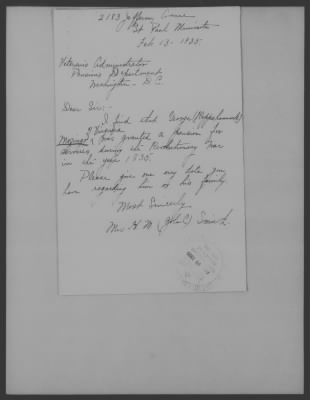 2183 Jefferson Avenue
St. Paul Minnesota
Feb 13 - 1935.
Veterans Administration
Pensions Department
Washington - D.C.
Dear Sirs:-
I find that George
of Virginia
was granted a pension for
services during the Revolutionary War
in the year 1835.
Please give me any data you
have regarding him or his family.
Most Sincerely
Mrs H. M.